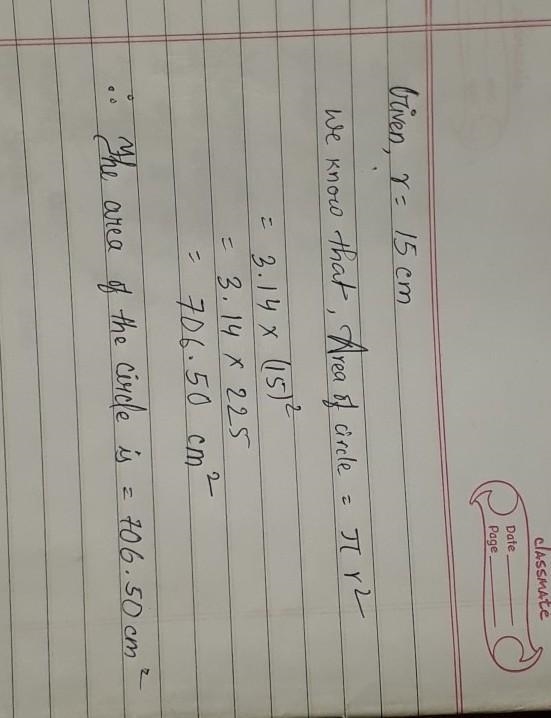 classmate
Date
Page
Given, r = 15 cm
We know that, Area of circle = π r²
= 3.14 × (15)²
= 3.14 × 225
= 706.50 cm²
∴ The area of the circle is = 706.50 cm²